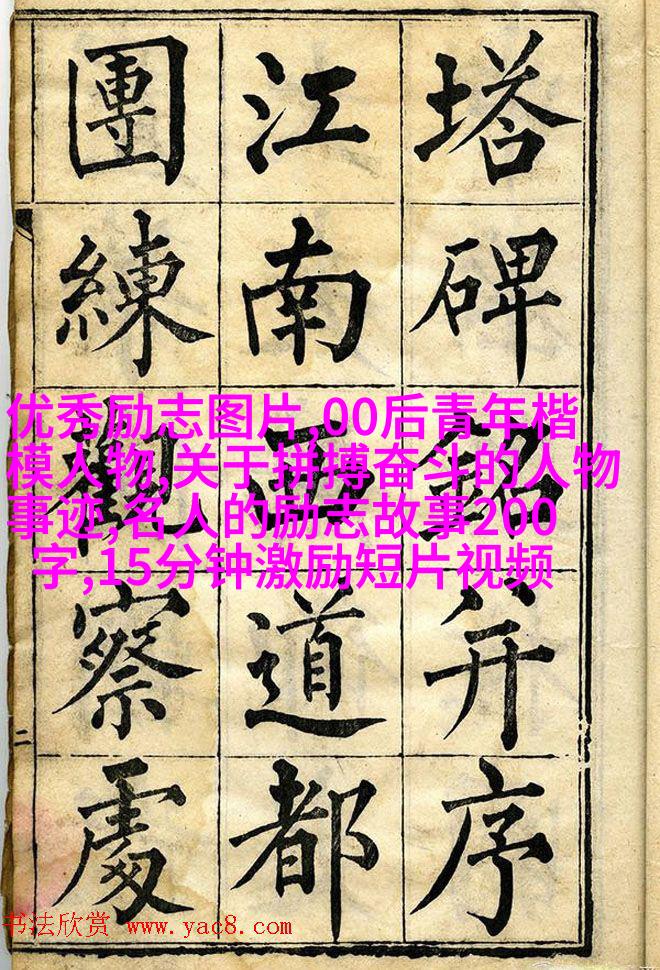 塔碑銘并序
江南西道都
團練觀察處
二
优秀励志图片,00后青年楷
模人物,关于拼搏奋斗的人物
事迹,名人的励志故事200
字,15分钟激励短片视频
书法欣赏 www.yac8.com